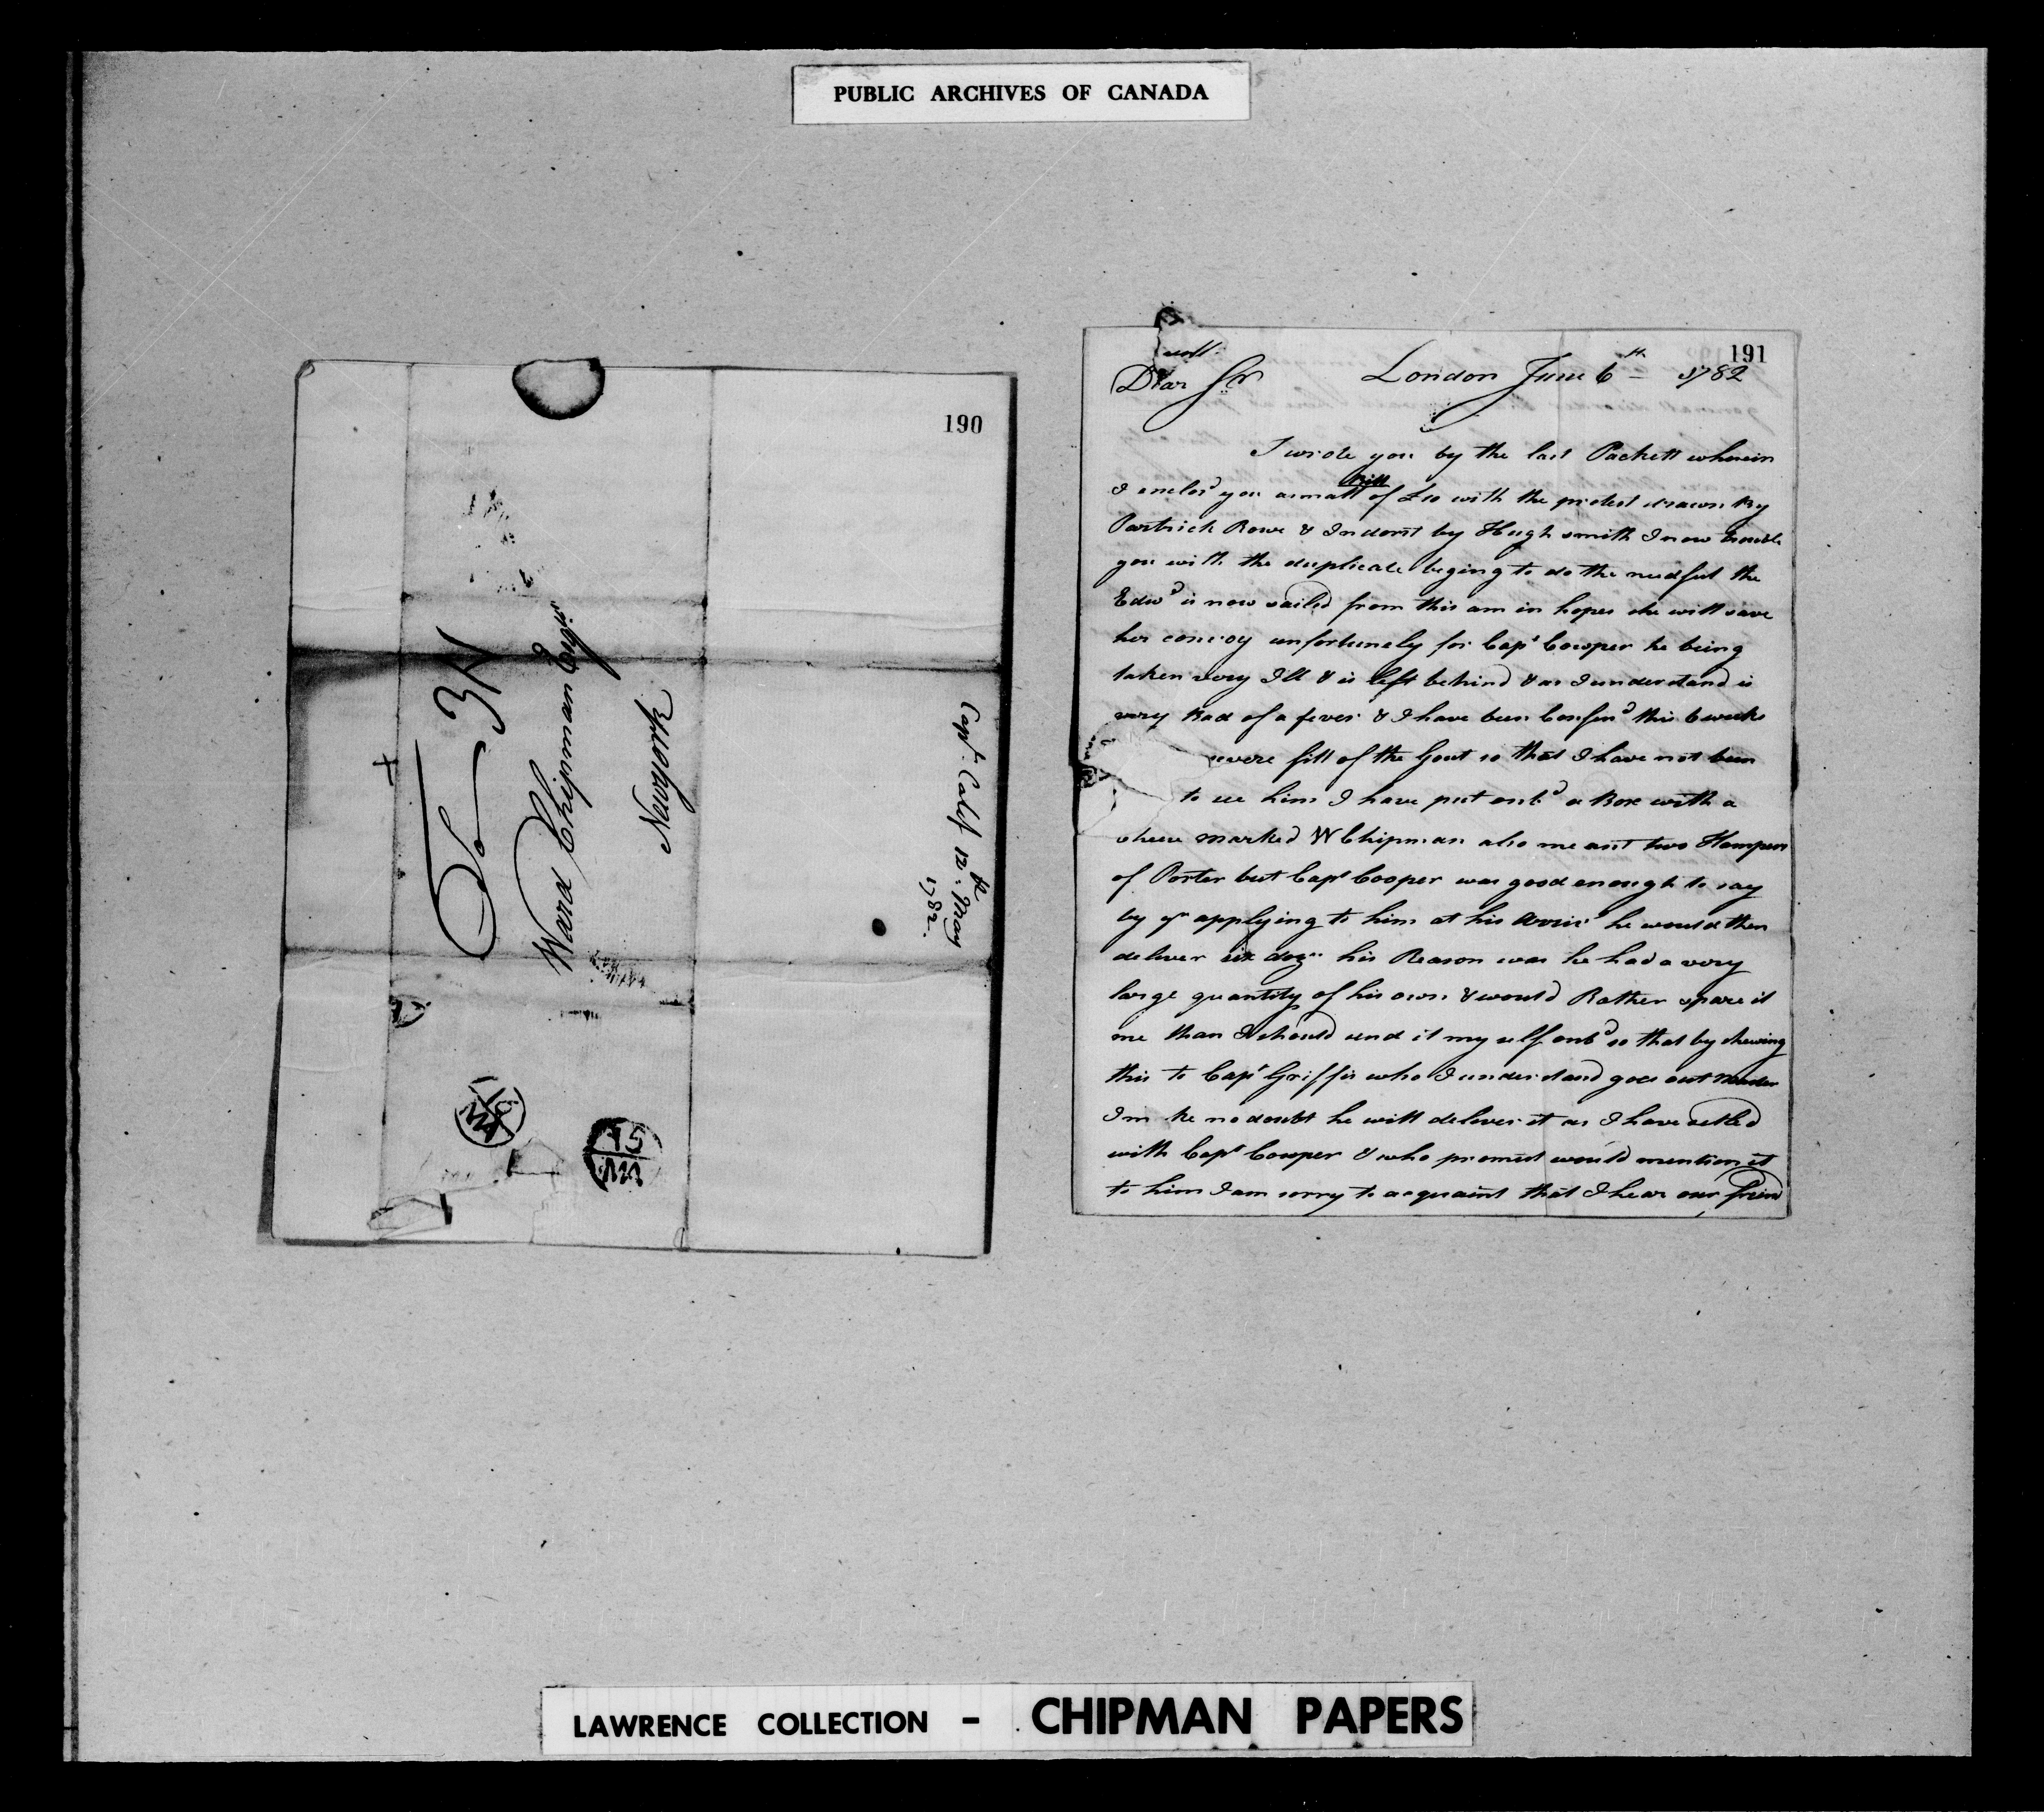 PUBLIC ARCHIVES OF CANADA
190
To 3N
Ward Chipman Esqr.
Newyork
Capt. Calef 12th. May
1782.
191
London June 6th 1782
Dear Sr
I wrote you by the last Packett wherein
I enclos'd you a small Bill of £10 with the protest drawn by
Partrick Rowe & Indorst by Hugh Smith I now trouble
you with the duplicate beging to do the needful the
Edwd is now sailed from this am in hopes she will save
her convoy unfortunely for Capt Cowper he being
taken very Ill & is left behind & as I understand is
very Bad of a fever & I have been Confin'd this 6 weeks
severe fitt of the Gout so that I have not been
to see him I have put onbd a Box with a
cheese marked W Chipman also meant two Hampers
of Porter but Capt Cooper was good enough to say
by yr applying to him at his he would then
deliver six dozn his Reason was he had a very
large quantity of his own & would Rather spare it
me than I should send it my self onbd so that by shewing
this to Capt Griffis who I understand goes out
Im no doubt he will deliver it as I have setled
with Capt Cowper & who promist would mention it
to him I am sorry to acquaint that I hear our freind
LAWRENCE COLLECTION - CHIPMAN PAPERS